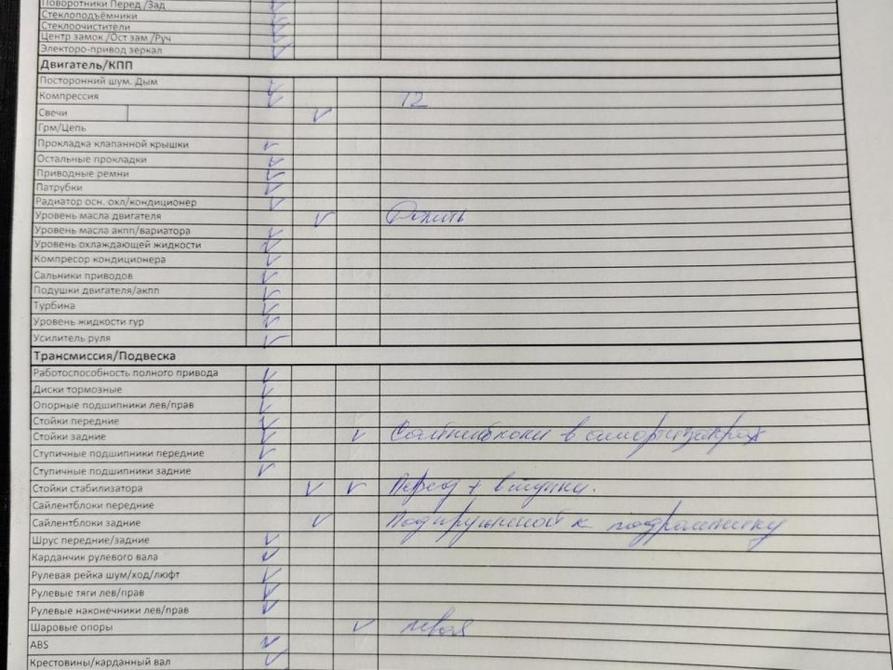 Поворотники Перед /Зад
Стеклоподъёмники
Стеклоочистители
Центр замок /Ост зам /Руч
Электоро-привод зеркал
Двигатель/КПП
Посторонний шум. Дым
Компрессия 12
Свечи
Грм/Цепь
Прокладка клапанной крышки
Остальные прокладки
Приводные ремни
Патрубки
Радиатор осн. охл/кондиционер
Уровень масла двигателя
Уровень масла акпп/вариатора
Уровень охлаждающей жидкости
Компресор кондиционера
Сальники приводов
Подушки двигателя/акпп
Турбина
Уровень жидкости гур
Усилитель руля
Трансмиссия/Подвеска
Работоспособность полного привода
Диски тормозные
Опорные подшипники лев/прав
Стойки передние
Стойки задние в амортизаторах
Ступичные подшипники передние
Ступичные подшипники задние
Стойки стабилизатора Перед + втулки.
Сайлентблоки передние
Сайлентблоки задние к подрамнику
Шрус передние/задние
Карданчик рулевого вала
Рулевая рейка шум/ход/люфт
Рулевые тяги лев/прав
Рулевые наконечники лев/прав
Шаровые опоры левая
ABS
Крестовины/карданный вал